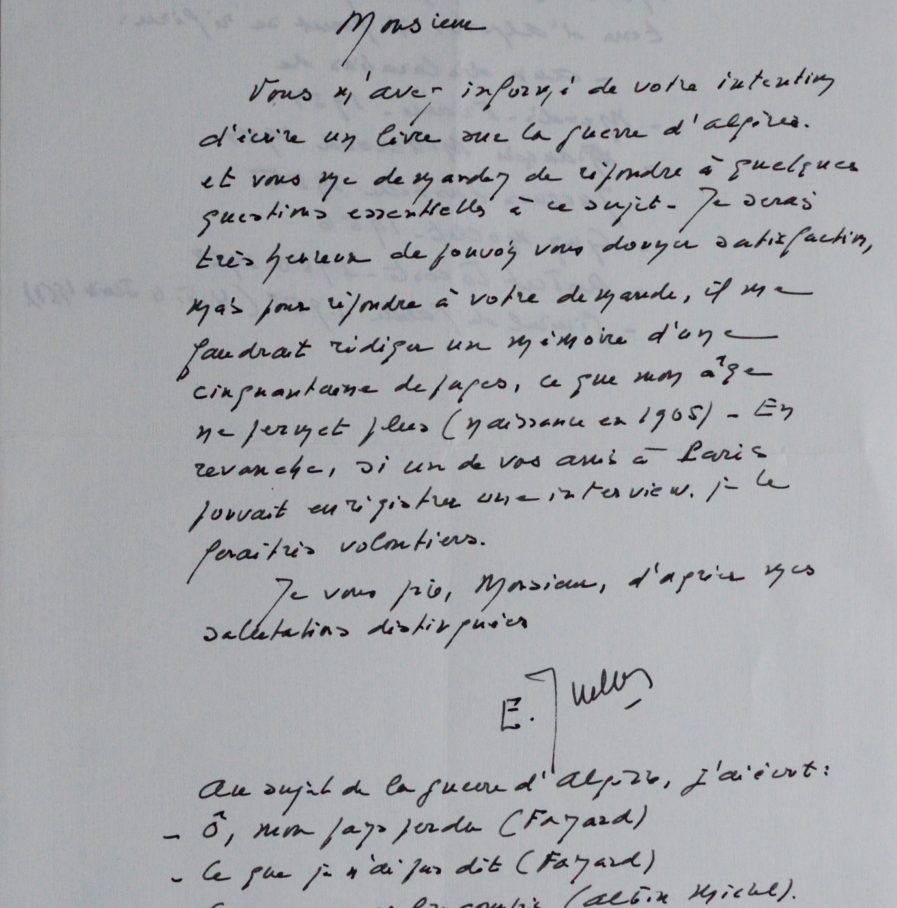 Monsieur
Vous m'avez informé de votre intention
d'écrire un livre sur la guerre d'Algérie.
et vous me demandez de répondre à quelques
questions essentielles à ce sujet - Je serais
très heureux de pouvoir vous donner satisfaction,
mais pour répondre à votre demande, il me
faudrait rédiger un mémoire d'une
cinquantaine de pages, ce que mon âge
ne permet plus (naissance en 1905) - En
revanche, si un de vos amis à Paris
pouvait enregistrer une interview. je le
ferai très volontiers.
Je vous prie, Monsieur, d'agréer mes
salutations distinguées
E. Jouhaud
Au sujet de la guerre d'Algérie, j'ai écrit :
- Ô, mon pays perdu (Fayard)
- Ce que je n'ai pas dit (Fayard)
(Albin Michel).